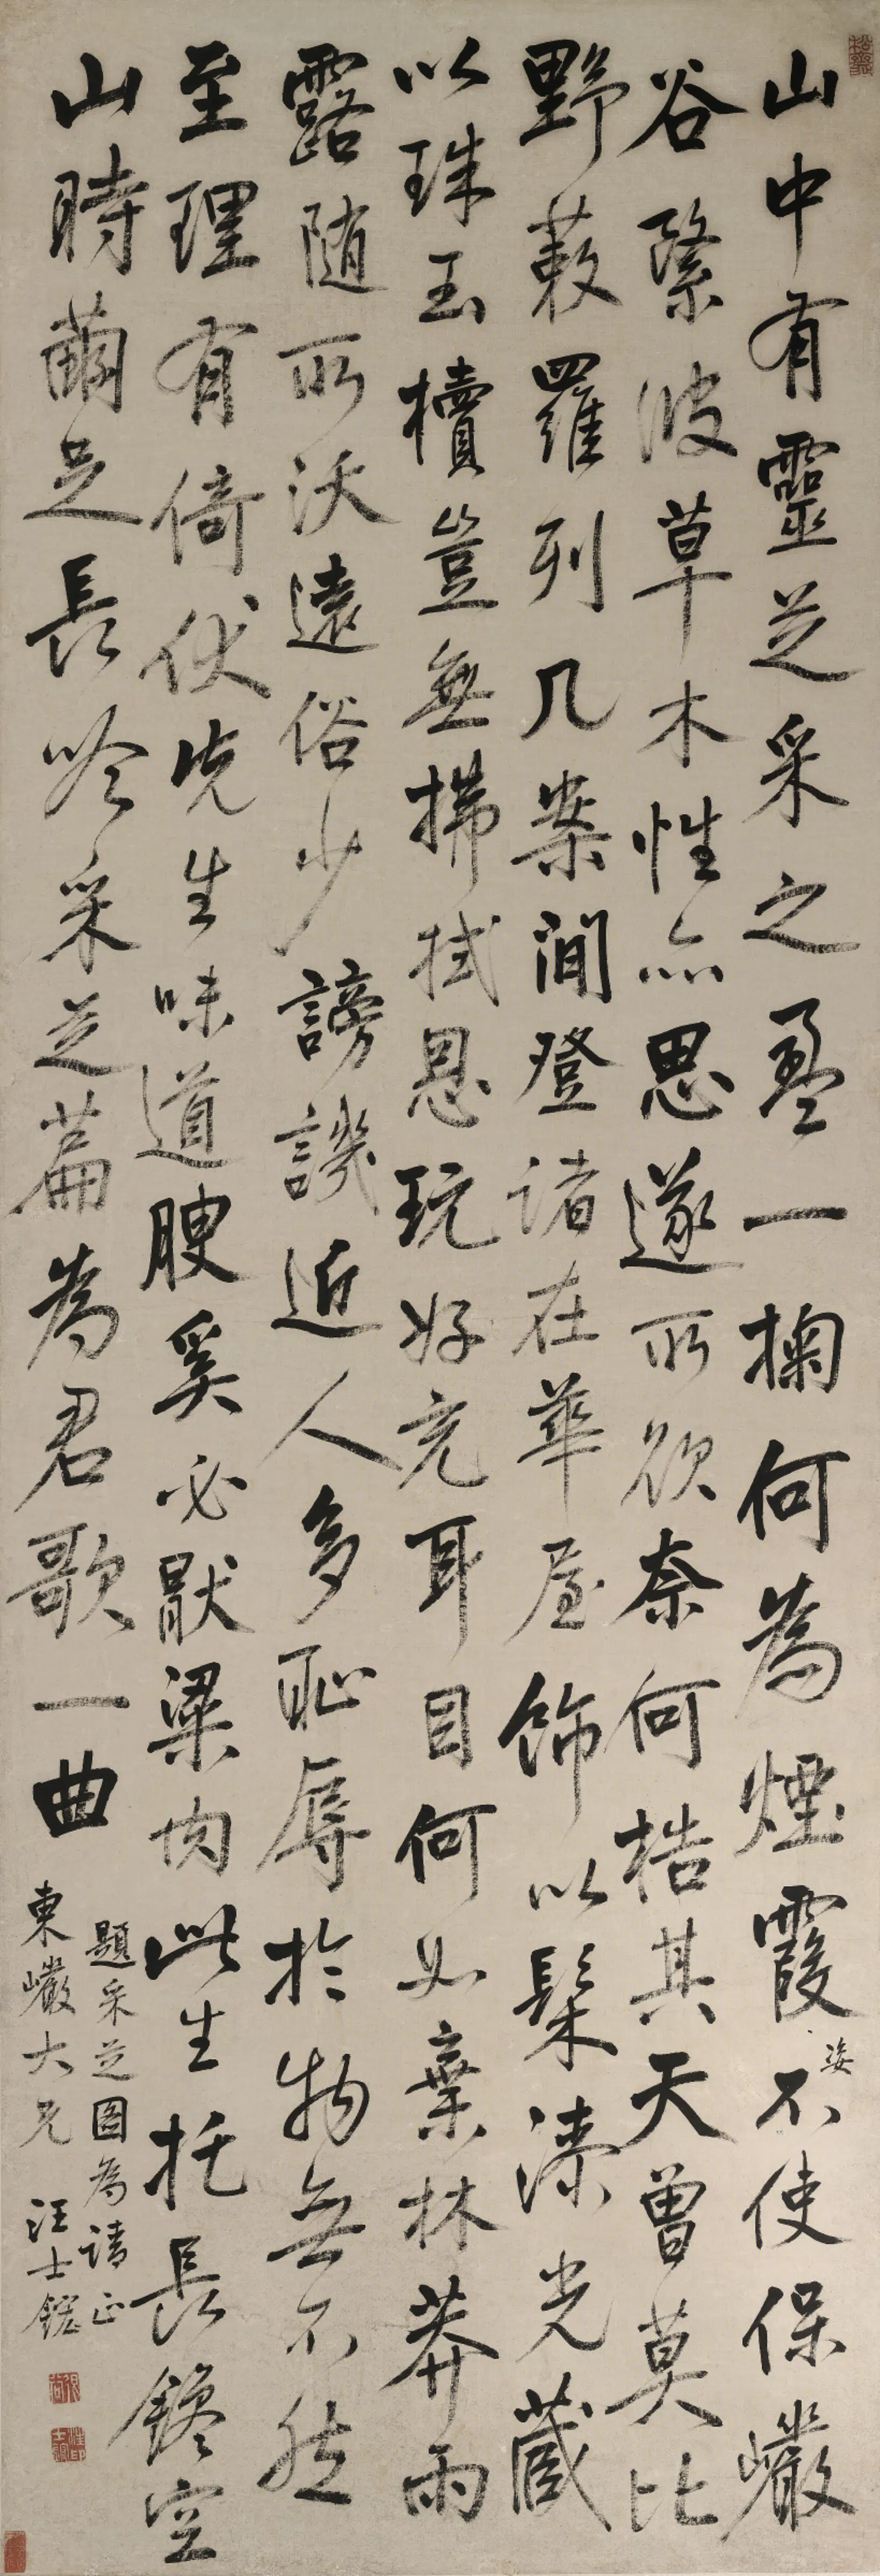 山中有靈芝采之盈一掬何為煙霞姿不使保巖
谷繄彼草木性亦思遂所欲奈何梏其天曾莫比
野蔌羅列几案間登諸在華屋飾以髹漆光藏
以珠玉櫝豈無拂拭恩玩好充耳目何如棄林莽雨
露隨所沃遠俗少謗譏近人多恥辱於物無不然
至理有倚伏先生味道腴奚必厭粱肉此生托長鑱空
山時薾芝長吟采芝篇為君歌一曲
題采芝圖為請正
東巖大兄 汪士鋐